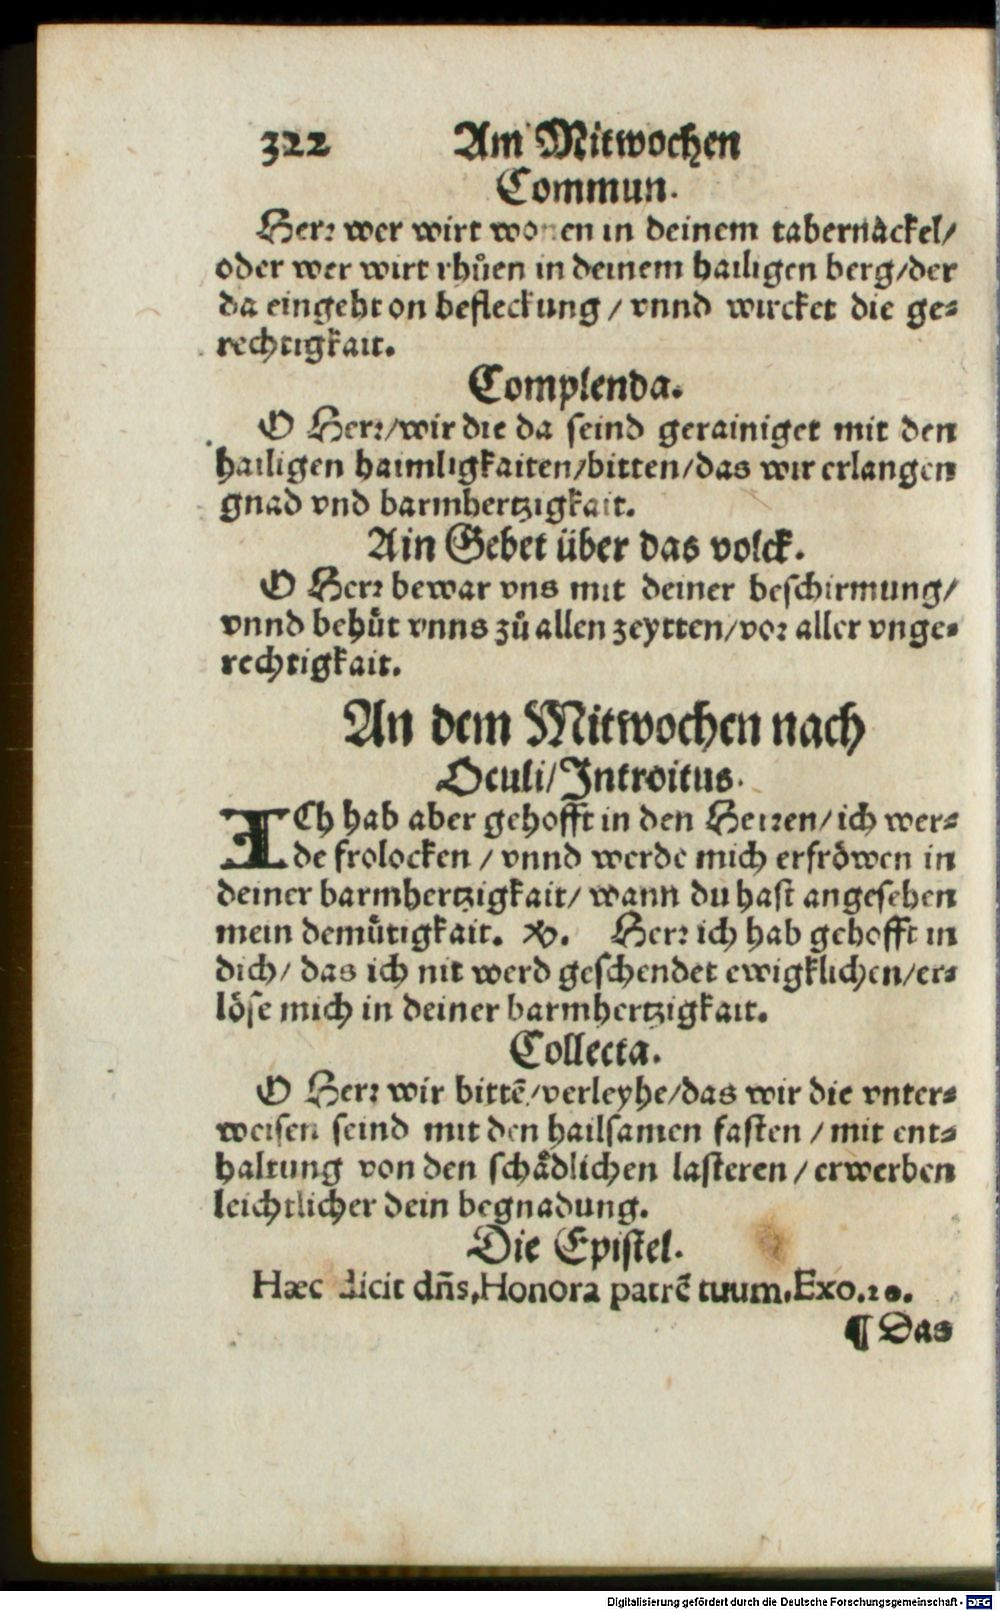 322 Am Mitwochen
Commun.
Herꝛ wer wirt wonen in deinem tabernackel/
oder wer wirt rhůen in deinem hailigen berg/der
da eingeht on befleckung / vnnd wircket die ge⸗
rechtigkait.
Complenda.
O Herꝛ/wir die da seind gerainiget mit den
hailigen haimligkaiten/bitten/das wir erlangen
gnad vnd barmhertzigkait.
Ain Gebet über das volck.
O Herꝛ bewar vns mit deiner beschirmung/
vnnd behůt vnns zů allen zeytten/voꝛ aller vnge⸗
rechtigkait.
An dem Mitwochen nach
Oculi/Introitus.
ICh hab aber gehofft in den Herꝛen/ich wer⸗
de frolocken / vnnd werde mich erfröwen in
deiner barmhertzigkait/ wann du hast angesehen
mein demůtigkait. ꝟ. Herꝛ ich hab gehofft in
dich/ das ich nit werd geschendet ewigklichen/er⸗
löse mich in deiner barmhertzigkait.
Collecta.
O Herꝛ wir bittẽ/verleyhe/das wir die vnter⸗
weisen seind mit den hailsamen fasten / mit ent⸗
haltung von den schädlichen lasteren / erwerben
leichtlicher dein begnadung.
Die Epistel.
Hæc dicit dñs, Honora patrẽ tuum. Exo. 20.
¶ Das
Digitalisierung gefördert durch die Deutsche Forschungsgemeinschaft - DFG